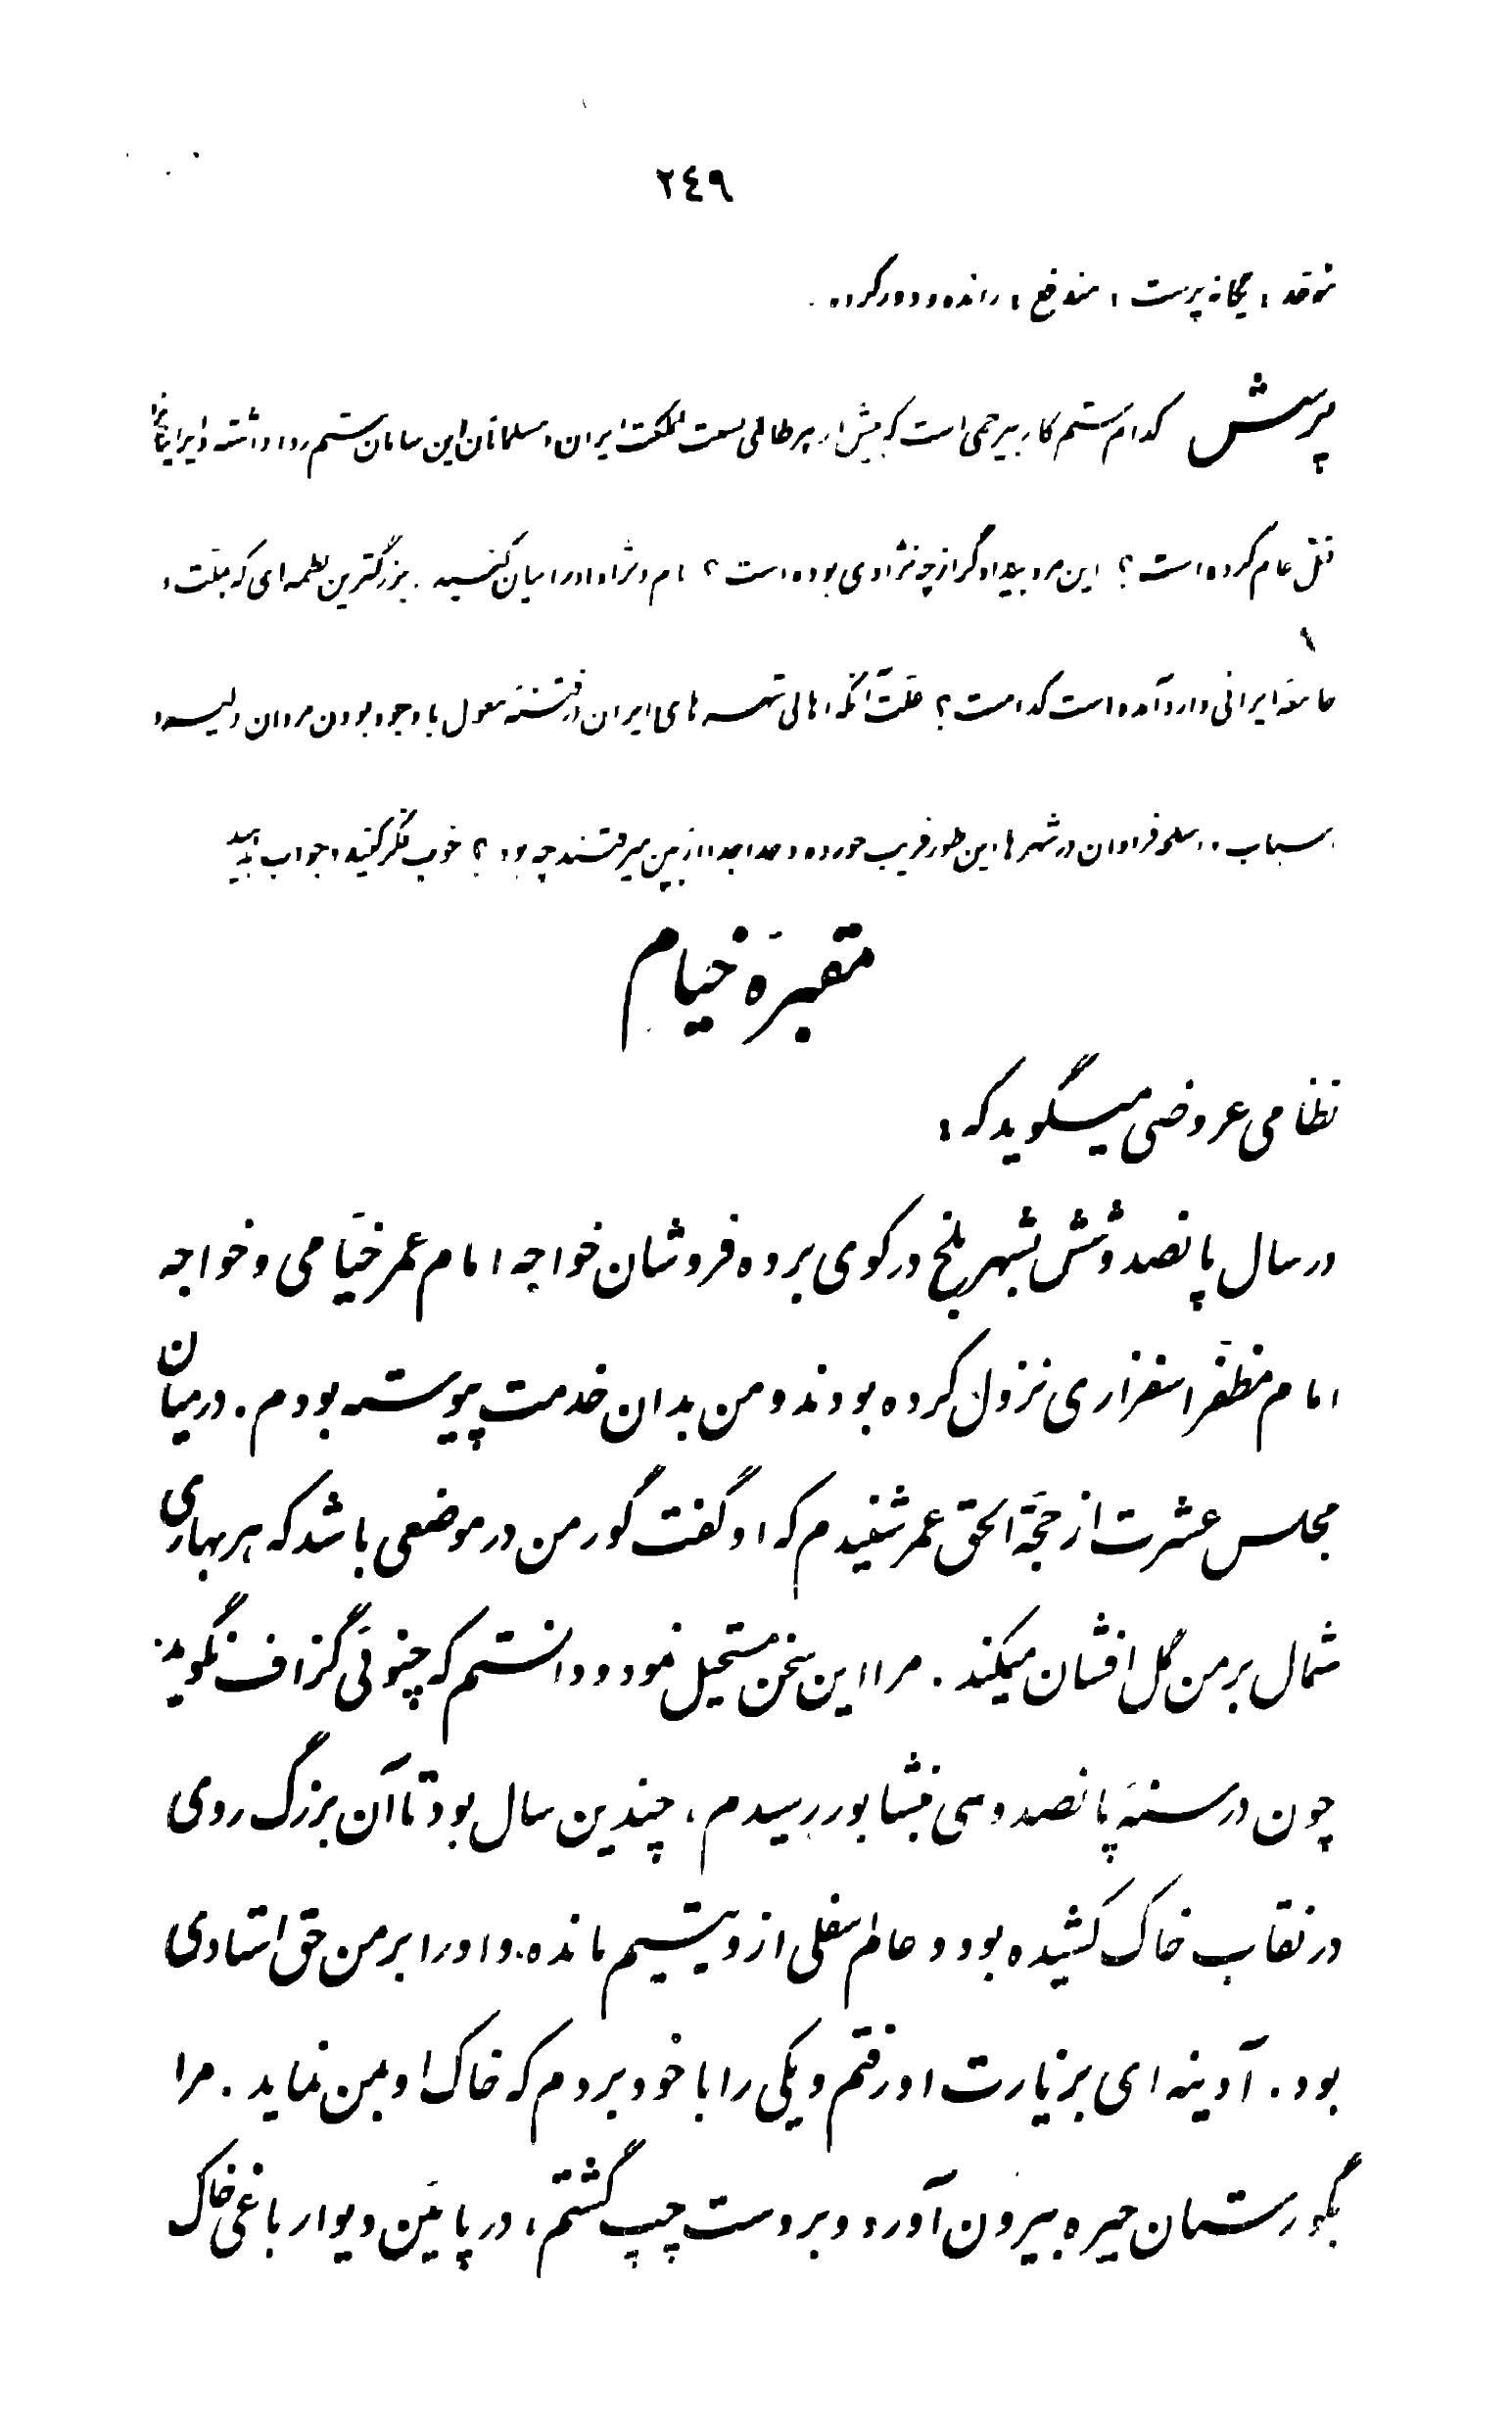 ٢٤٩
موحد ، یگانه پرست ، مندفع ، رانده و دور کرده .
پرسش کدام ستم کار بیرحمی است که بیش از هر ظالمی نسبت بمملکت ایران و مسلمانان این سامان ستم روا داشته و ایرانیانرا
قتل عام کرده است ؟ این مرد بیدادگر از چه نژادی بوده است ؟ نام و نژاد او را بیان کنید . بزرگترین لطمه ای که بملت و
جامعهٔ ایرانی وارد آمده است کدامست ؟ علت آنکه اهالی شهرهای ایران در فتنهٔ مغول با وجود بودن مردان دلیر و
اسباب و اسلحه فراوان در شهرها این طور فریب خورده و جدا جدا از بین میرفتند چه بود ؟ خوب فکر کنید و جواب بدهید
مقبرهٔ خیام
نظامی عروضی میگوید که :
در سال پانصد و شش بشهر بلخ در کوی برده فروشان خواجه امام عمر خیّامی و خواجه
امام مظفّر اسفزاری نزول کرده بودند و من بدان خدمت پیوسته بودم . در میان
مجلس عشرت از حجّة الحق عمر شنیدم که او گفت گور من در موضعی باشد که هر بهاری
شمال بر من گل افشان میکند . مرا این سخن مستحیل نمود و دانستم که چنوئی گزاف نگوید
چون در سنهٔ پانصد و سی بنشابور رسیدم ، چندین سال بود تا آن بزرگ روی
در نقاب خاک کشیده بود و عالم سفلی از و یتیم مانده . و او را بر من حق استادی
بود . آدینه ای بزیارت او رفتم و یکی را با خود بردم که خاک او بمن نماید . مرا
بگورستان حیره بیرون آورد و بر دست چپ گشتم ، در پائین دیوار باغی خاک